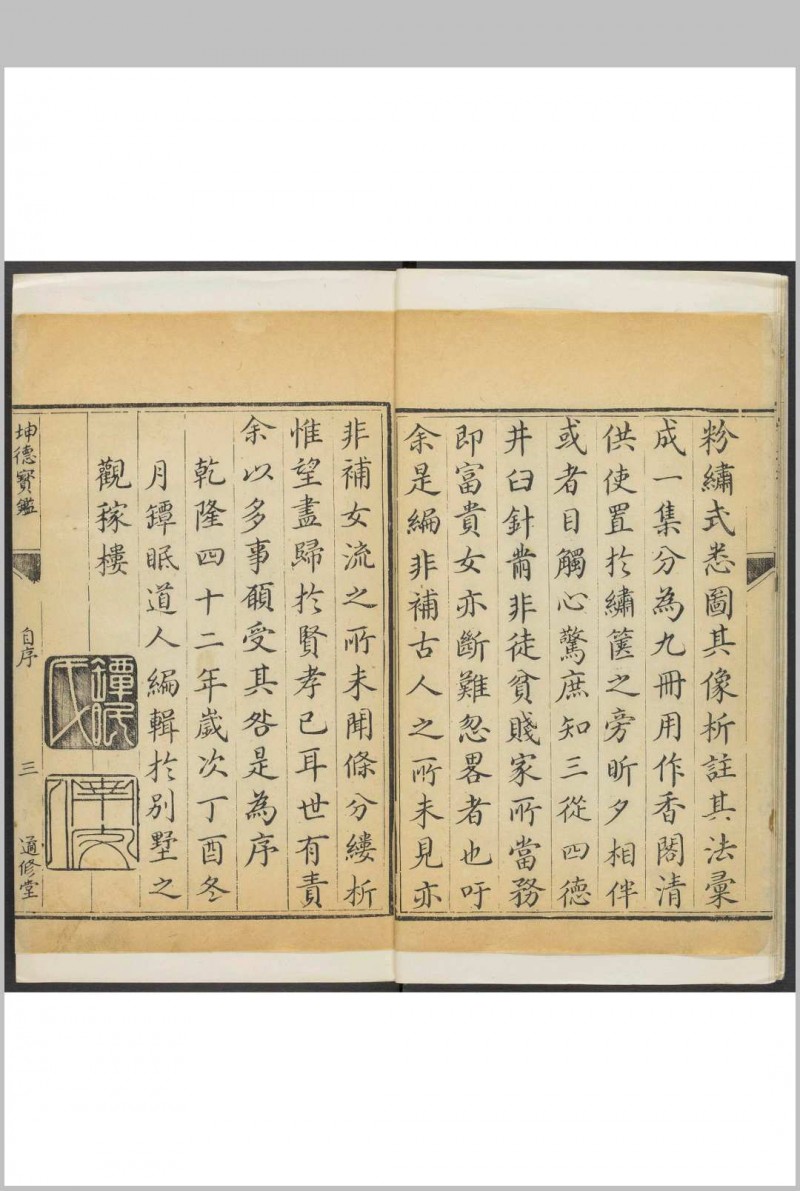 粉繡式悉圖其像析註其法彙
成一集分為九冊用作香閣清
供使置於繡篋之旁昕夕相伴
或者目觸心驚庶知三從四德
井臼針黹非徒貧賤家所當務
即富貴女亦斷難忽畧者也吁
余是編非補古人之所未見亦
非補女流之所未聞條分縷析
惟望盡歸於賢孝已耳世有責
余以多事願受其咎是為序
乾隆四十二年歲次丁酉冬
月鐔眠道人編輯於別墅之
觀稼樓
鐔眠
氏
坤德寶鑑
自序
三
通修堂